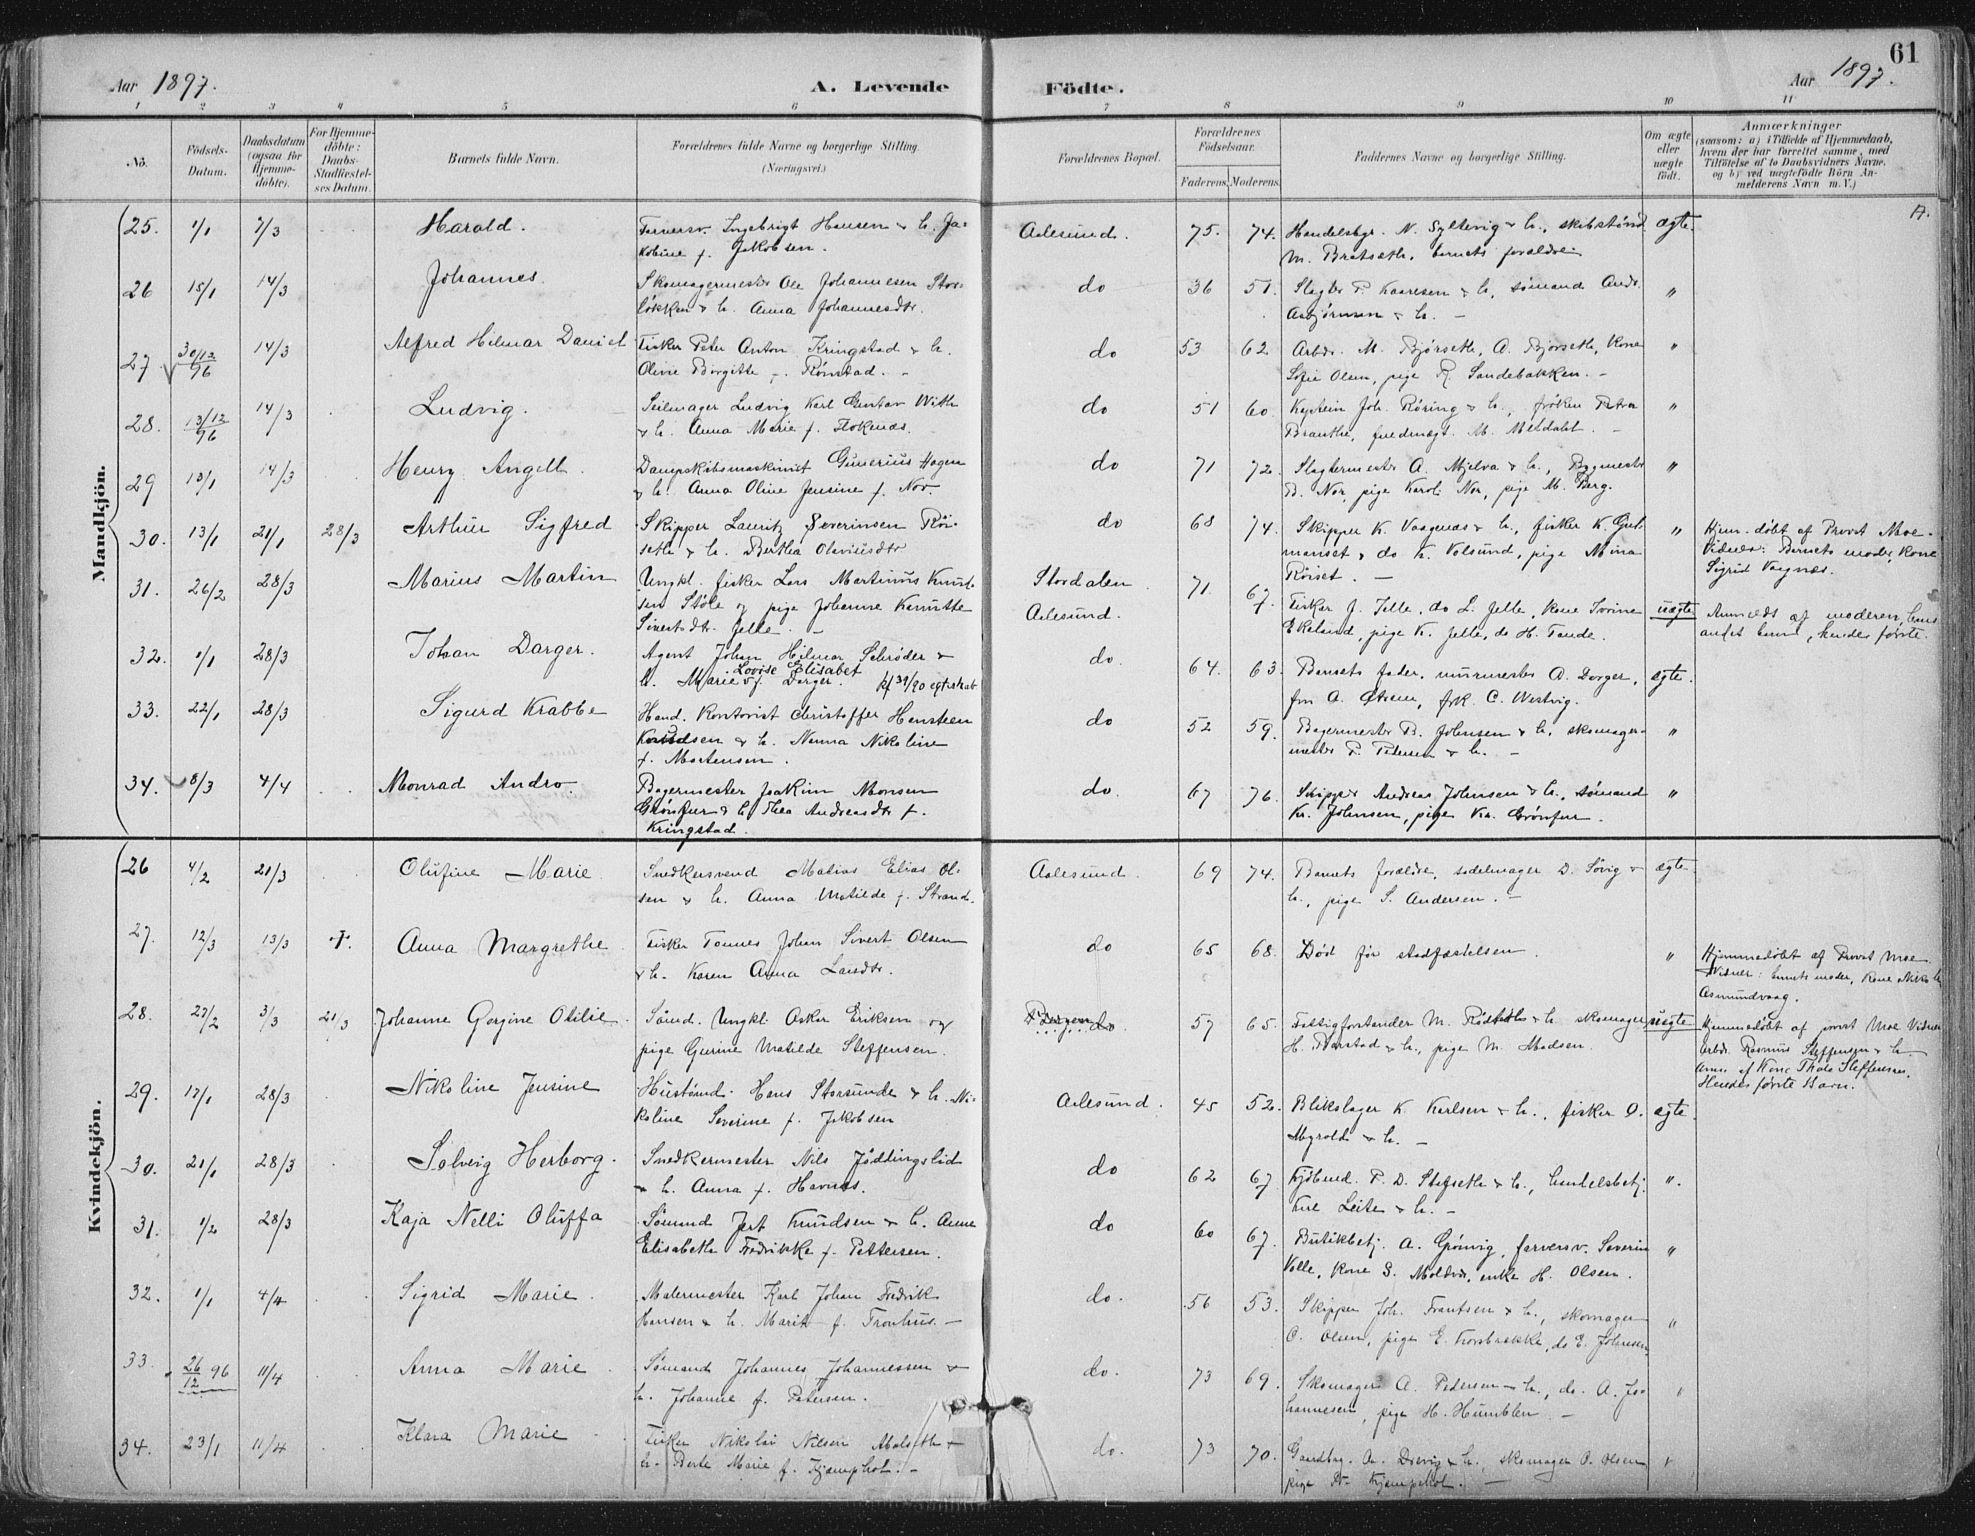 61
Aar 1897.
A. Levende Födte.
Aar 1897.
1 2 3 4 5 6 7 8 9 10 11
No.
Födsels-Datum.
Daabsdatum (ogsaa for Hjemme-döbte).
For Hjemme-döbte: Daabs-Stadfæstel-ses Datum.
Barnets fulde Navn.
Forældrenes fulde Navne og borgerlige Stilling. (Næringsvei.)
Forældrenes Bopæl.
Forældrenes Födselsaar.
Faderens. Moderens.
Faddernes Navne og borgerlige Stilling.
Om ægte eller uægte födt.
Anmærkninger
(saasom: a) i Tilfælde af Hjemmedaab,
hvem der har forrettet samme, med
Tilföielse af to Daabsvidners Navne,
og b) ved uægtefödte Börn An-
melderens Navn m. V.)
Mandkjön.
25. 1/1 7/3 Harald. Farversv. Ingebrigt Hansen & h. Ja- Aalesund. 75. 74. Handelsbgr. N. Syltevig & h., ægte.
kobine f. Jakobsen. M. Bratseth, barnets forældre
26 15/1 14/3 Johannes. Skomagermester Ole Johannesen Stor- do 36 51. Slagter P. Kaaresen & h., sømand Andr. "
løkken & h. Anna Johannesdtr. Asbjørnsen & h. -
27 30/12 96 14/3 Alfred Hilmar Daniel Fisker Peter Anton Kringstad & h. do 53 62 Arbdr. M. Bjørseth, A. Bjørseth, kone "
Olevie Birgitte f. Rønstad. Sofie Olsen, pige R. Sandebakken. -
28. 13/12 96 14/3 Ludvig. Seilmager Ludvig Karl Gustav With do 51 60. Kaptein Joh. Röring & h., frøken Petra "
& h. Anna Marie f. Flokenæs. M. Meldahl.
29 13/1 14/3 Henry Angell. Dampskibsmaskinist Gunerius Hagen do 71 72. Slagtermester A. Mjelva & h., Bygmester "
& h. Anna Oline Jensine f. Nor. B. Nor, pige Karol. Nor, pige M. Berg.
30. 13/1 21/1 28/3 Arthur Sigfred Skipper Lauritz Severinsen Röi- do 68 74. Skipper K. Vaagenæs & h., fisker K. " Hjem.døbt af Provst Moe.
seth & h. Bertha Olaviusdtr & do K. Volsund, pige Mina Vidner: Barnets moder, kone
Röiset. - Sigrid Vagnæs.
31. 26/2 28/3 Marius Martin Ungkl. fisker Lars Martinus Knud- Stordalen 71 67. Fisker J. Jelle, do L. Jelle, kone Ivrine uægte Anmeldt af moderen, hans
sen Støle og pige Johanne Knutte Aalesund. Ekelund, pige K. Jelle, do H. Tande. andet barn, hendes første.
Sivertsdtr. Jelle. -
32. 1/1 28/3 Johan Darger. Agent Johan Hilmar Schrøder & do. 64. 63. Barnets fader, murmester A. Dorger, ægte.
Lovise Elisabet
h. Marie f. Dorger. C. Westvig.
33. 22/1 28/3 Sigurd Krabbe Hand. Kontorist Christoffer Hensteen do 52 59. Bagermester B. Johnsen & h. skomager- "
Knudsen & h. Nanna Nikoline mester P. Pedersen & h. -
f. Mortensen.
34. 8/3 4/4 Monrad Andro. Bagermester Joakim Monsen do. 67 76. Skipper Andreas Johnsen & h., sømand "
Grønfur & h. Thea Andreasdtr f. Kr. Johnsen, pige Ka. Grönfur.
Kringstad.
Kvindekjön.
26 4/2 21/3 Olufine Marie Snedkersvend Matias Elias Ol- Aalesund. 69 74. Barnets forældre, sadelmager D. Sövig & ægte.
sen & h. Anna Matilde f. Strand. h., pige S. Andersen. -
27. 12/3 13/3 †. Anna Margrethe Fisker Tønnes Johan Sivert Olsen do 65 68. Død før stadfæstelsen. " Hjemmedöbt af Provst Moe.
& h. Karen Anna Larsdtr. Vidner: barnets moder, kone
Asmundvaag.
28. 27/2 3/3 21/3 Johanne Gorgine Otilie Sömd. Ungkl. Oskar Eriksen og Bergen do 57 65. Fattigforstander M. & h. skomager uægte Hjemmedöbt af provst Moe Vidner
pige Gurine Matilde Steffensen. H. & h., pige M. Madsen. Arbdr. Rasmus Steffensen & h.
Anm. af Kone Thale Steffensen.
Hendes første Barn.
29. 17/1 28/3 Nikoline Jensine Hustömd. Hans Storsunde & h. Ni- Aalesund. 45 52. Blikslager K. Karlsen & h., fisker O. ægte.
koline Severine f. Jakobsen Myrold & h. -
30. 21/1 28/3 Solveig Herborg. Snedkermester Nils Jöddingslid do 62 67. Kjöbmd. P. D. Stafseth & h., handelsbetj. ".
& h. Anna f. Havnes. Leite & h. -
31. 1/2 28/3 Kaja Nelli Oluffa Sömand Jert Knudsen & h. Anne do 60 67. Butikbetj. A. Grönvig, farversv. Severin "
Elisabeth Fredrikke f. Pettersen. Valle, kone S. Moldvær, enke H. Olsen.
32. 1/1 4/4 Sigrid Marie. Malermester Karl Johan Fredrik do. 56 53. Skipper Joh. Frantsen & h., skomager "
Hansen & h. Marit f. Tronhus. - O. Olsen, pige E. Korsbrekke, do E. Johnsen
33. 26/12 96 11/4 Anna Marie Sömand Johannes Johannessen & do. 73 69. Skomager A. Pedersen & h., do. A. Jo- "
h. Johanne f. Petersen. hannesen, pige H. Humblen. -
34. 23/1 11/4 Klara Marie Fisker Nikolai Nilsen & do. 73 70. A. & h., skomager O. Olsen "
h. Berte Marie f. Kjempehol. - pige Kjempehol. -